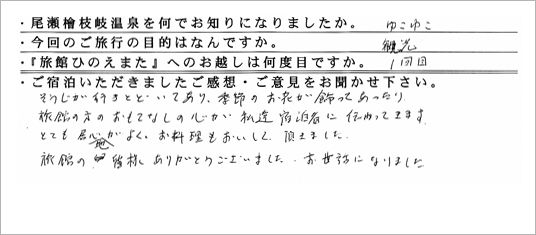 ・尾瀬檜枝岐温泉を何でお知りになりましたか。 ゆこゆこ
・今回のご旅行の目的はなんですか。 観光
・『旅館ひのえまた』へのお越しは何度目ですか。 1回目
・ご宿泊いただきましたご感想・ご意見をお聞かせ下さい。
そうじが行きとどいてあり、季節のお花が飾ってあったり
旅館の方のおもてなしの心が私達宿泊者に伝わってきます
とても居心地がよく、お料理もおいしく頂きました。
旅館の皆様ありがとうございました。お世話になりました